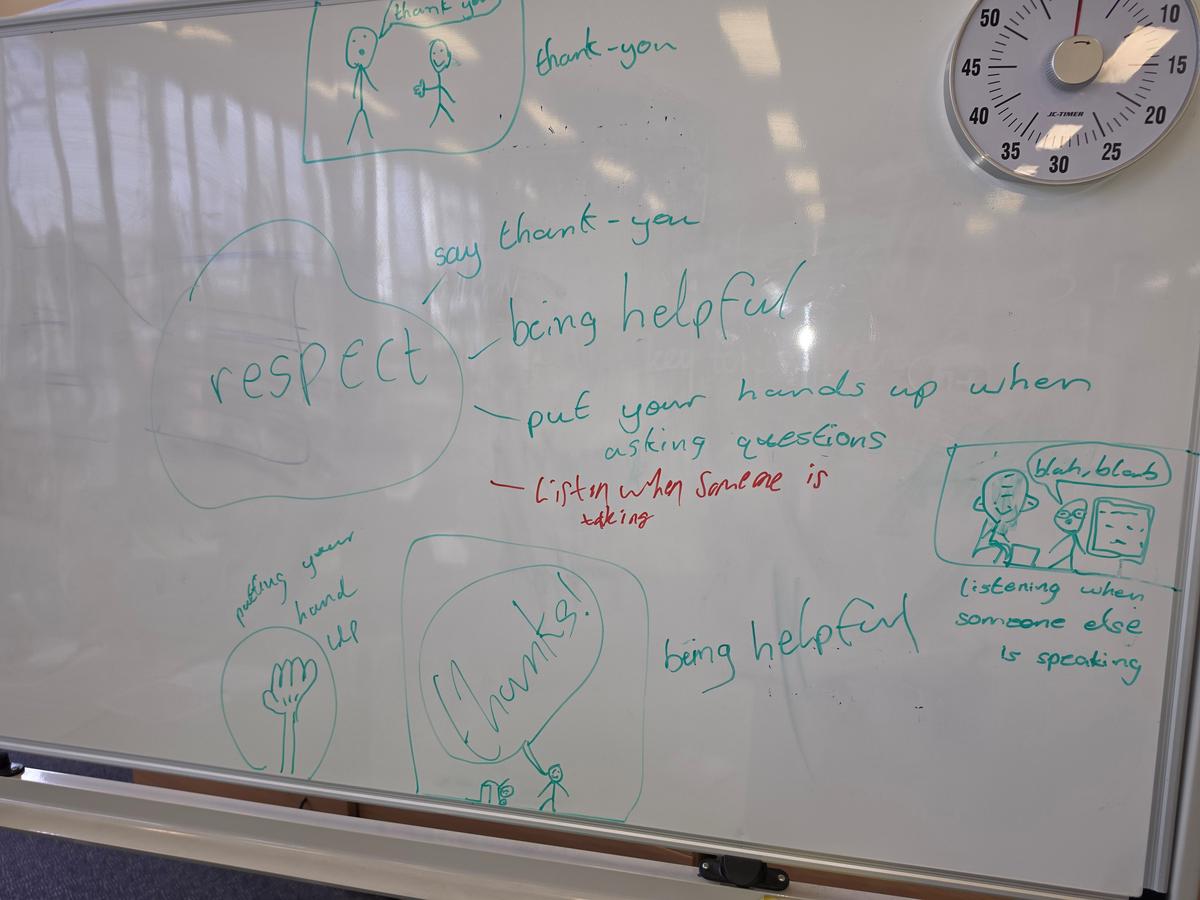 thank you
thank-you
50
10
45
15
40
20
35
30
25
JC-TIMER
say thank-you
being helpful
respect
put your hands up when
asking questions
Liston when someone is
taking
blah, blah
putting your
hand
up
Thanks!
being helpful
listening when
someone else
is speaking